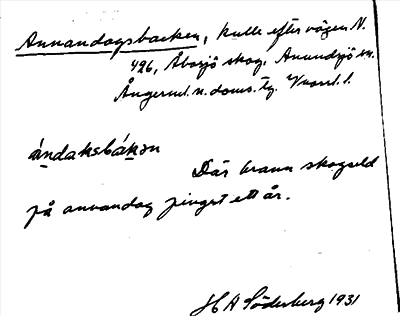 Annandagsbacken, kulle efter vägen N.
426, Åborjö skog, Anundsjö sn.
Ångerml. n. doms. tg. Vnorrl. l.
ándaksbákən
Där brann skogseld
på annandag pingst ett år.
H A Söderberg 1931